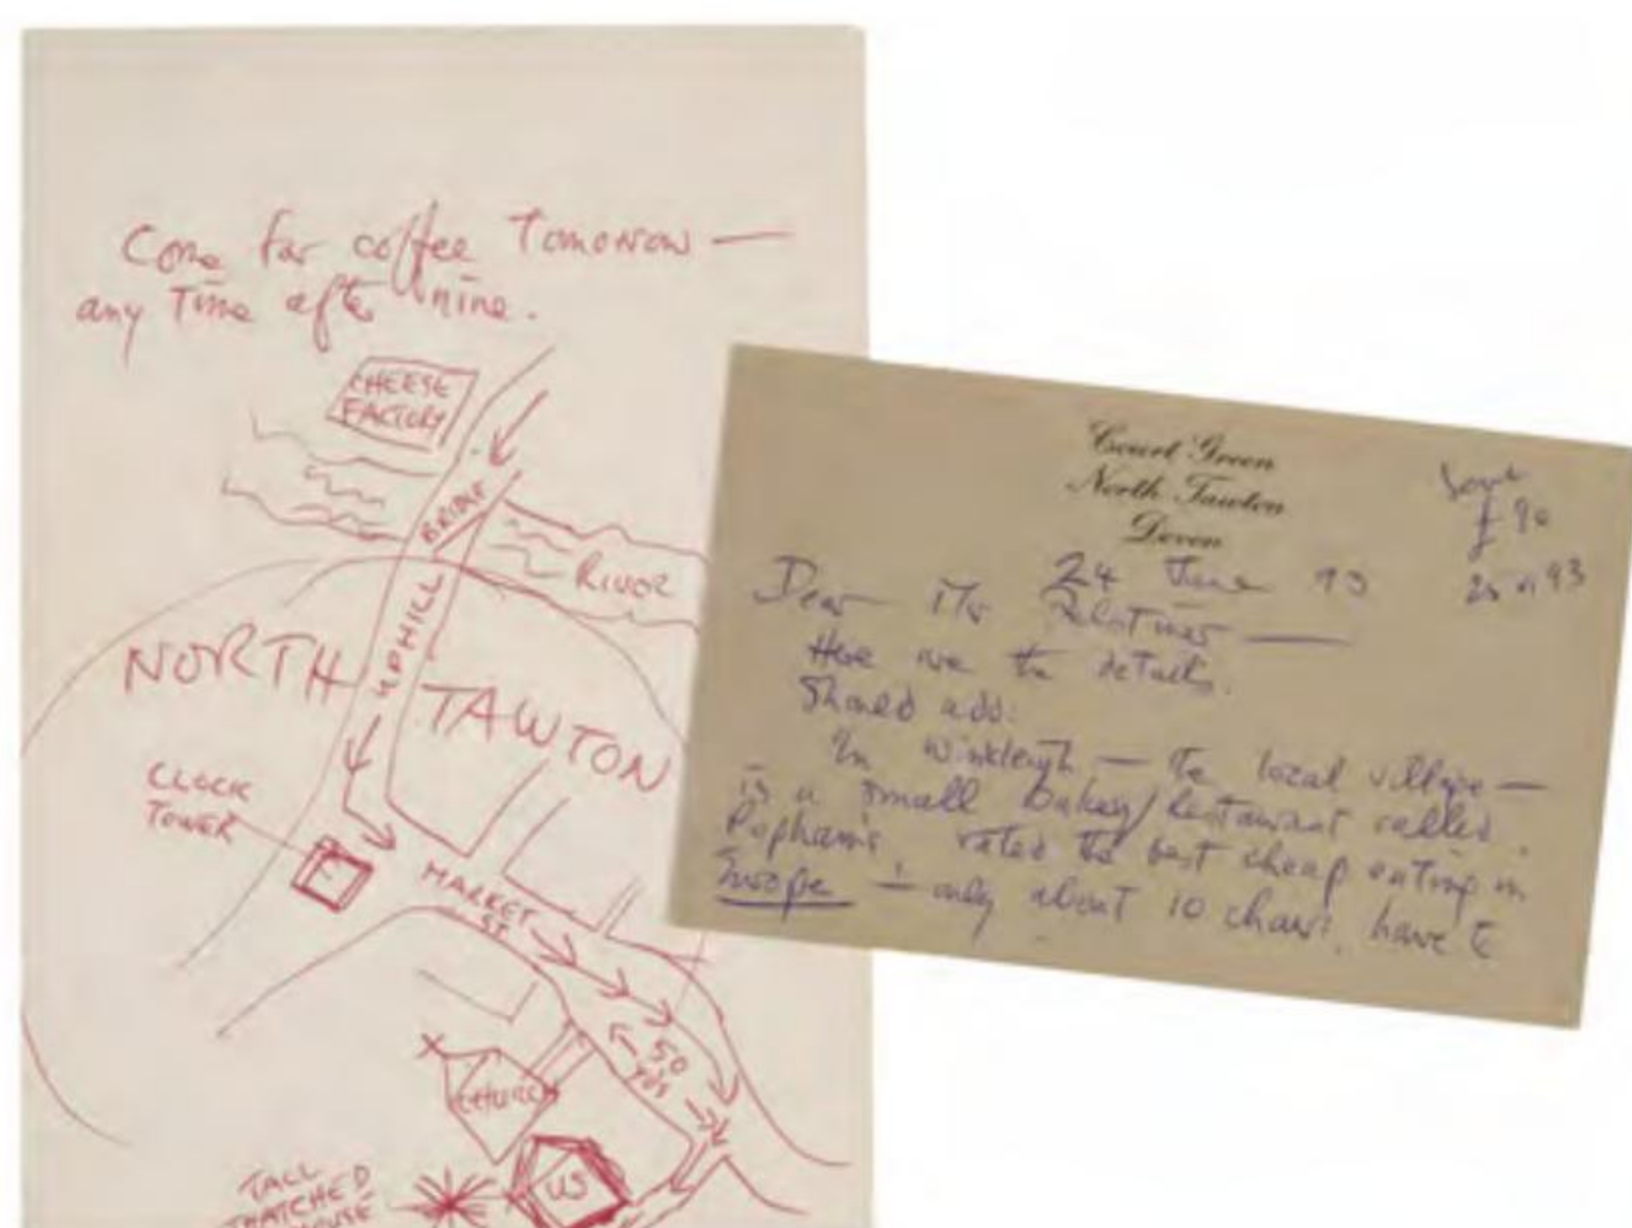 Come for coffee Tomorrow —
any Time after nine.
CHEESE
FACTORY
BRIDGE
RIVER
UPHILL
NORTH TAWTON
CLOCK
TOWER
MARKET
ST.
50
yds
CHURCH
US
TALL
THATCHED
HOUSE
Court Green
North Tawton
Devon
24 June 93
Dear Mr
Here are the details.
Should add:
In Winkleigh — the local village —
is a small bakery/restaurant called
Popham's rated the best cheap eating in
Europe — only about 10 chairs, have to